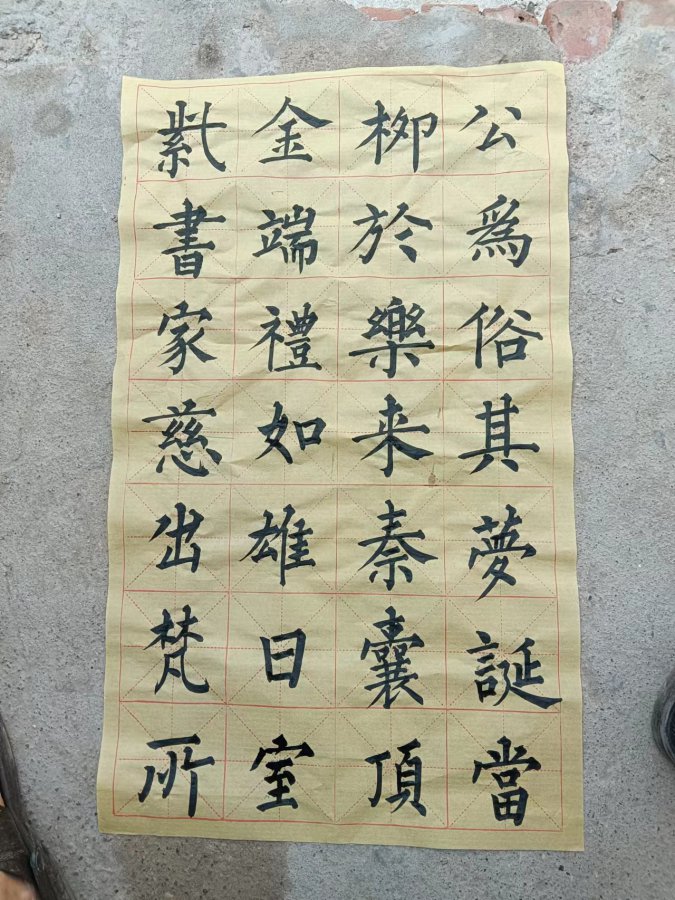 公爲俗其夢誕當
柳於樂来秦囊頂
金端禮如雄日室
紫書家慈出梵所